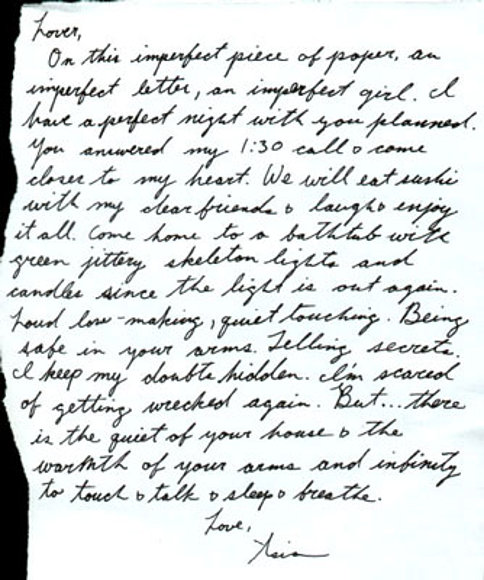 Lover,
On this imperfect piece of paper, an
imperfect letter, an imperfect girl. I
have a perfect night with you planned.
You answered my 1:30 call & come
closer to my heart. We will eat sushi
with my dear friends & laugh & enjoy
it all. Come home to a bathtub with
green jittery skeleton lights and
candles since the light is out again.
Loud love-making, quiet touching. Being
safe in your arms. Telling secrets.
I keep my doubts hidden. I'm scared
of getting wrecked again. But... there
is the quiet of your house & the
warmth of your arms and infinity
to touch & talk & sleep & breathe.
Love,